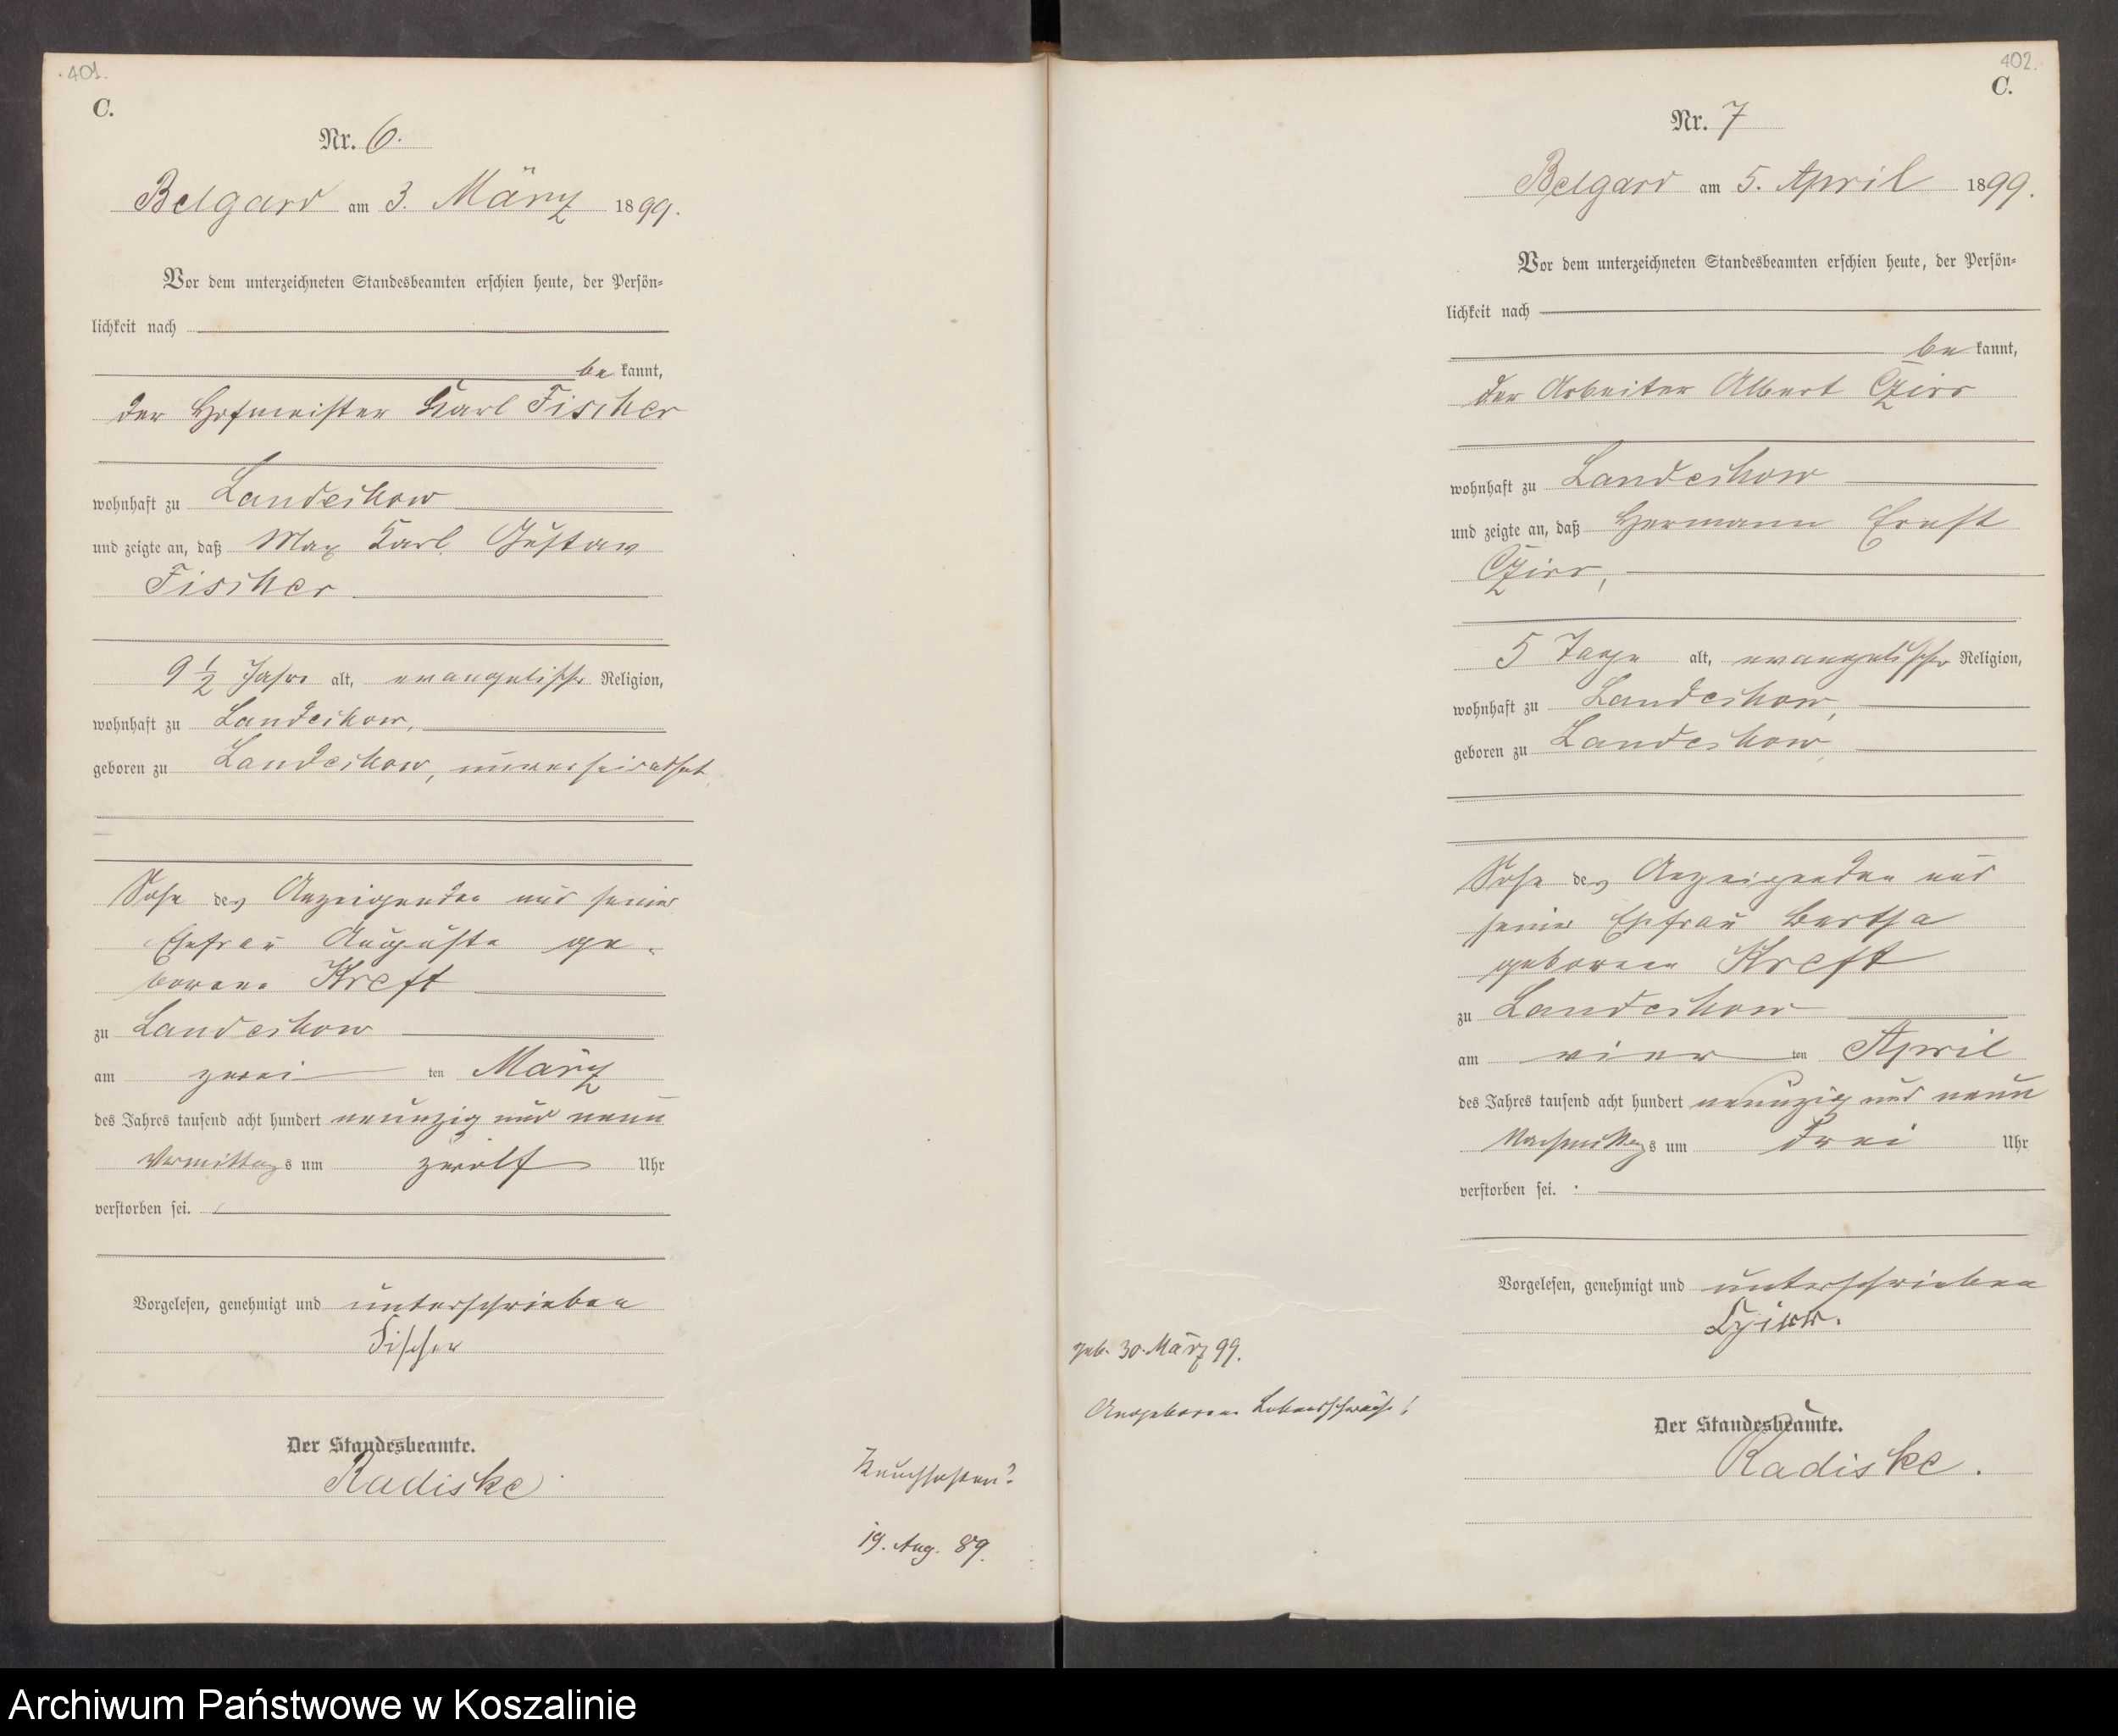 401.
C.
Nr. 6.
Belgard am 3. März 1899.
Vor dem unterzeichneten Standesbeamten erschien heute, der Persön-
lichkeit nach
be kannt,
der Hofmeister Karl Fischer
wohnhaft zu Landechow
und zeigte an, daß Max Karl Gustav
Fischer
9 1/2 Jahre alt, evangelischer Religion,
wohnhaft zu Landechow,
geboren zu Landechow, unverheirathet,
Sohn des Anzeigenden und seiner
Ehefrau Auguste ge-
borene Kreft
zu Landechow
am zwei ten März
des Jahres tausend acht hundert neunzig und neun
Vormittags um zwölf Uhr
verstorben sei.
Vorgelesen, genehmigt und unterschrieben
Fischer
Der Standesbeamte.
Radiske
Keuchhusten?
19. Aug. 89.
402.
C.
Nr. 7
Belgard am 5. April 1899.
Vor dem unterzeichneten Standesbeamten erschien heute, der Persön-
lichkeit nach
be kannt,
der Arbeiter Albert Czirr
wohnhaft zu Landechow
und zeigte an, daß Hermann Ernst
Czirr,
5 Tage alt, evangelischer Religion,
wohnhaft zu Landechow,
geboren zu Landechow,
Sohn des Anzeigenden und
seiner Ehefrau Bertha
geborenen Kreft
zu Landechow
am vier ten April
des Jahres tausend acht hundert neunzig und neun
Nachmittags um drei Uhr
verstorben sei.
Vorgelesen, genehmigt und unterschrieben
Czirr.
geb. 30. März 99.
Angeborene Lebensschwäche!
Der Standesbeamte.
Radiske.
Archiwum Państwowe w Koszalinie